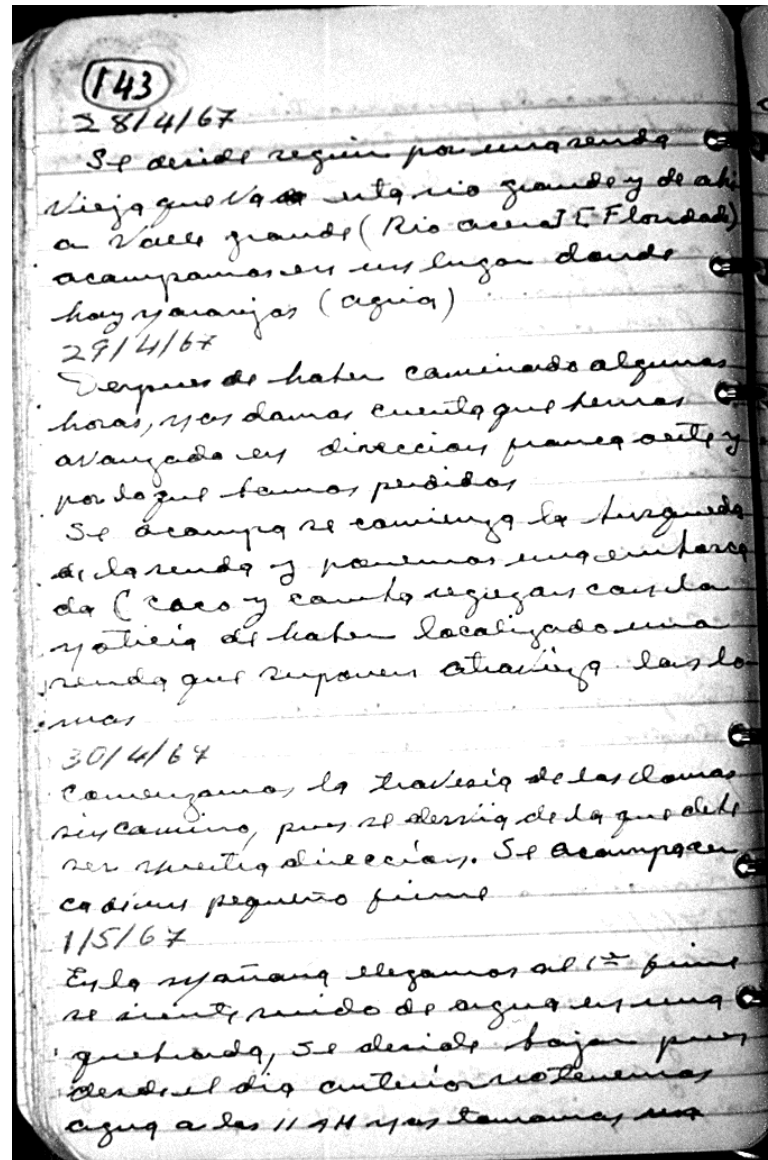 143
28/4/67
Se decide seguir por una senda
vieja que va esta rio grande y de ahi
a Valle grande (Rio
acampamos en un lugar donde
hay naranjos (agua)
29/4/67
Despues de haber caminado algunas
horas, nos damos cuenta que hemos
avanzado en direccion franca oeste y
por lo que estamos perdidos
Se acampa se comienza la busqueda
de la senda y ponemos una embosca
da (Coco y Camba regresan con la
noticia de haber localizado una
senda que suponen atravieza las lo
mas
30/4/67
Comenzamos la travesia de las lomas
sin camino, pues se desvia de la que debe
ser nuestra direccion. Se acampa cer
ca de un pequeño firme
1/5/67
En la mañana llegamos al 1er firme
se siente ruido de agua en una
quebrada, se decide bajar pues
desde el dia anterior no tenemos
agua a las 11 AM nos tomamos una